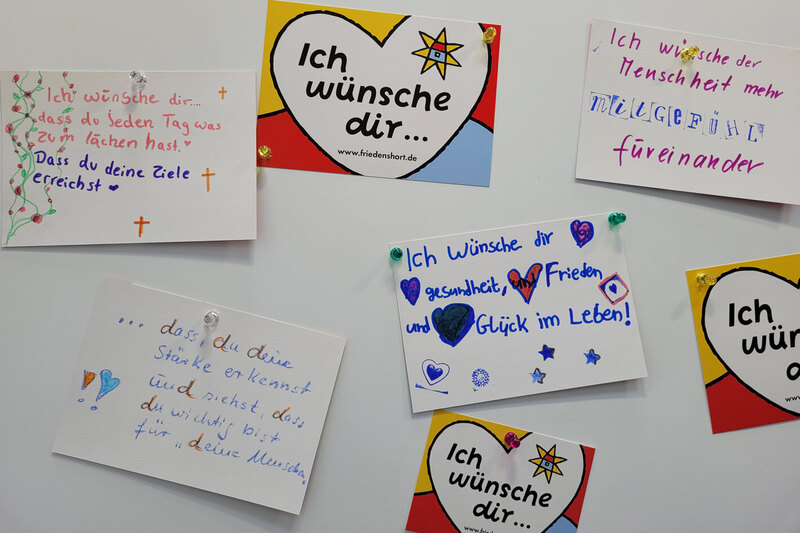 Ich wünsche dir...
dass du jeden Tag was
zum lachen hast.
Dass du deine Ziele
erreichst
Ich
wünsche
dir...
www.friedenshort.de
Ich wünsche der
Menschheit mehr
MITGEFÜHL
füreinander
... dass, du deine
Stärke erkennst
und siehst, dass
du wichtig bist
für „deine Menschen"
Ich Wünsche dir
gesundheit, und Frieden
und Glück im Leben!
Ich
wünsche
dir...
www.
Ich
wünsche
dir...
www.frie